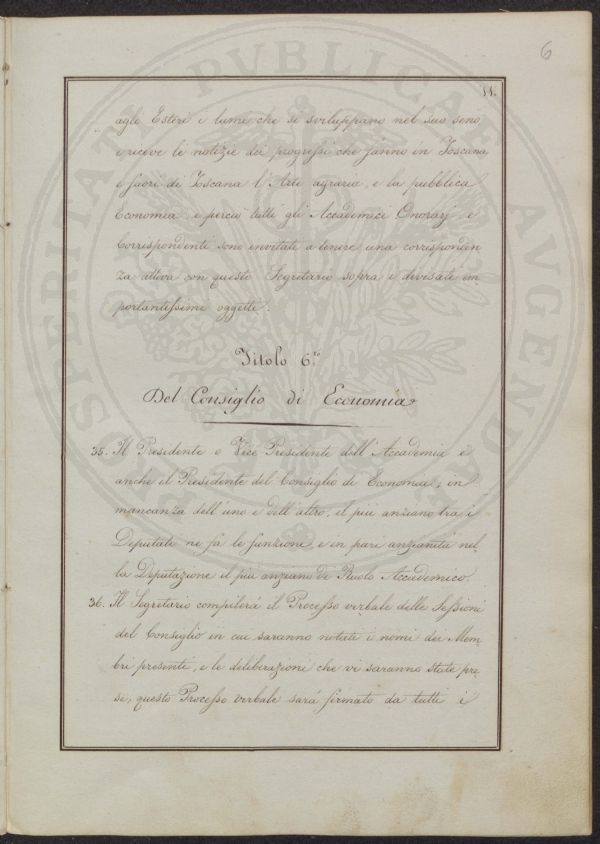 6
11.
agli Esteri i lumi che si sviluppano nel suo seno,
e riceve le notizie dei progressi che fanno in Toscana
e fuori di Toscana l'Arte agraria, e la pubblica
Economia, e perciò tutti gli Accademici Onorarj, e
Corrispondenti sono invitati a tenere una corrisponden
za attiva con questo Segretario sopra i divisati im
portantissimi oggetti.
Titolo 6.to
Del Consiglio di Economia
35. Il Presidente o Vice-Presidente dell'Accademia è
anche il Presidente del Consiglio di Economia; in
mancanza dell'uno e dell'altro, il più anziano tra i
Deputati ne fà le funzioni, e in pari anzianità nel
la Deputazione il più anziano di Ruolo Accademico.
36. Il Segretario compilerà il Processo verbale delle Sessioni
del Consiglio in cui saranno notati i nomi dei Mem
bri presenti, e le deliberazioni che vi saranno state pre
se, questo Processo verbale sarà firmato da tutti i
PROSPERITATI PVBLICAE AVGENDAE